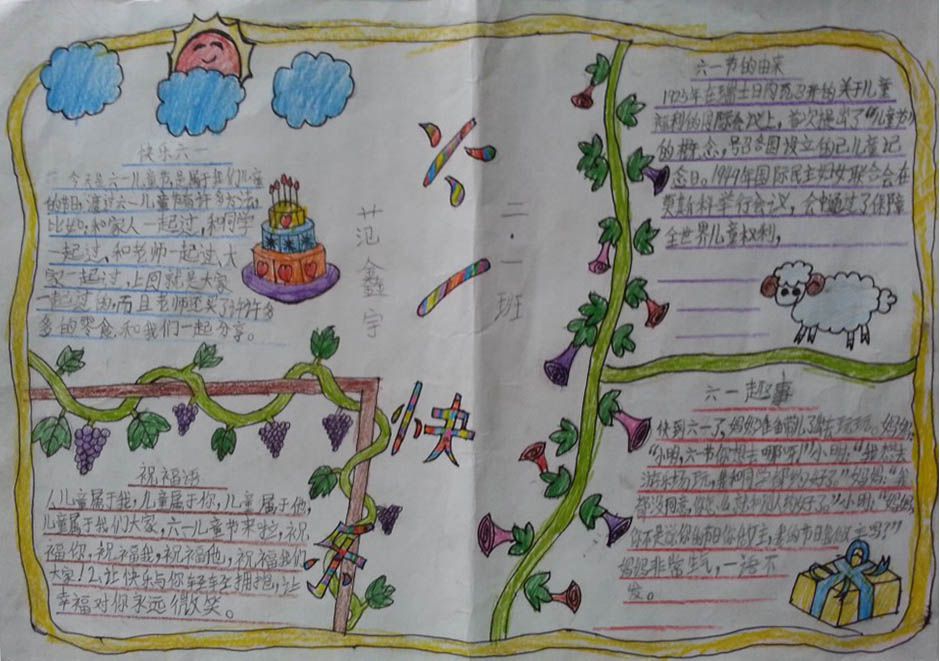 快乐六一
今天是六一儿童节是属于我们儿童
的节日,渡过六一儿童节有许多方法,
比如:和家人一起过,和同学
一起过,和老师一起过,大
家一起过,上回就是大家
一起过的,而且老师还买了许许多
多的零食,和我们一起分享。
六一
快乐
范鑫宇
二·一班
祝福语
1、儿童属于我,儿童属于你,儿童属于他,
儿童属于我们大家,六一儿童节来啦,祝
福你,祝福我,祝福他,祝福我们
大家!2、让快乐与你轻轻拥抱,让
幸福对你永远微笑。
六一节的由来
1925年在瑞士日内瓦召开的关于儿童
福利的国际会议上,首次提出了“儿童节”
的概念,号召各国设立自己儿童纪
念日。1949年国际民主妇女联合会在
莫斯科举行会议,会中通过了保障
全世界儿童权利,
六一趣事
快到六一了,妈妈准备带儿子去玩玩。妈妈:
“小明,六一节你想去哪呀”小明:“我想去
游乐场玩,
小明:“妈妈,
妈妈非常生气,一语不
发。